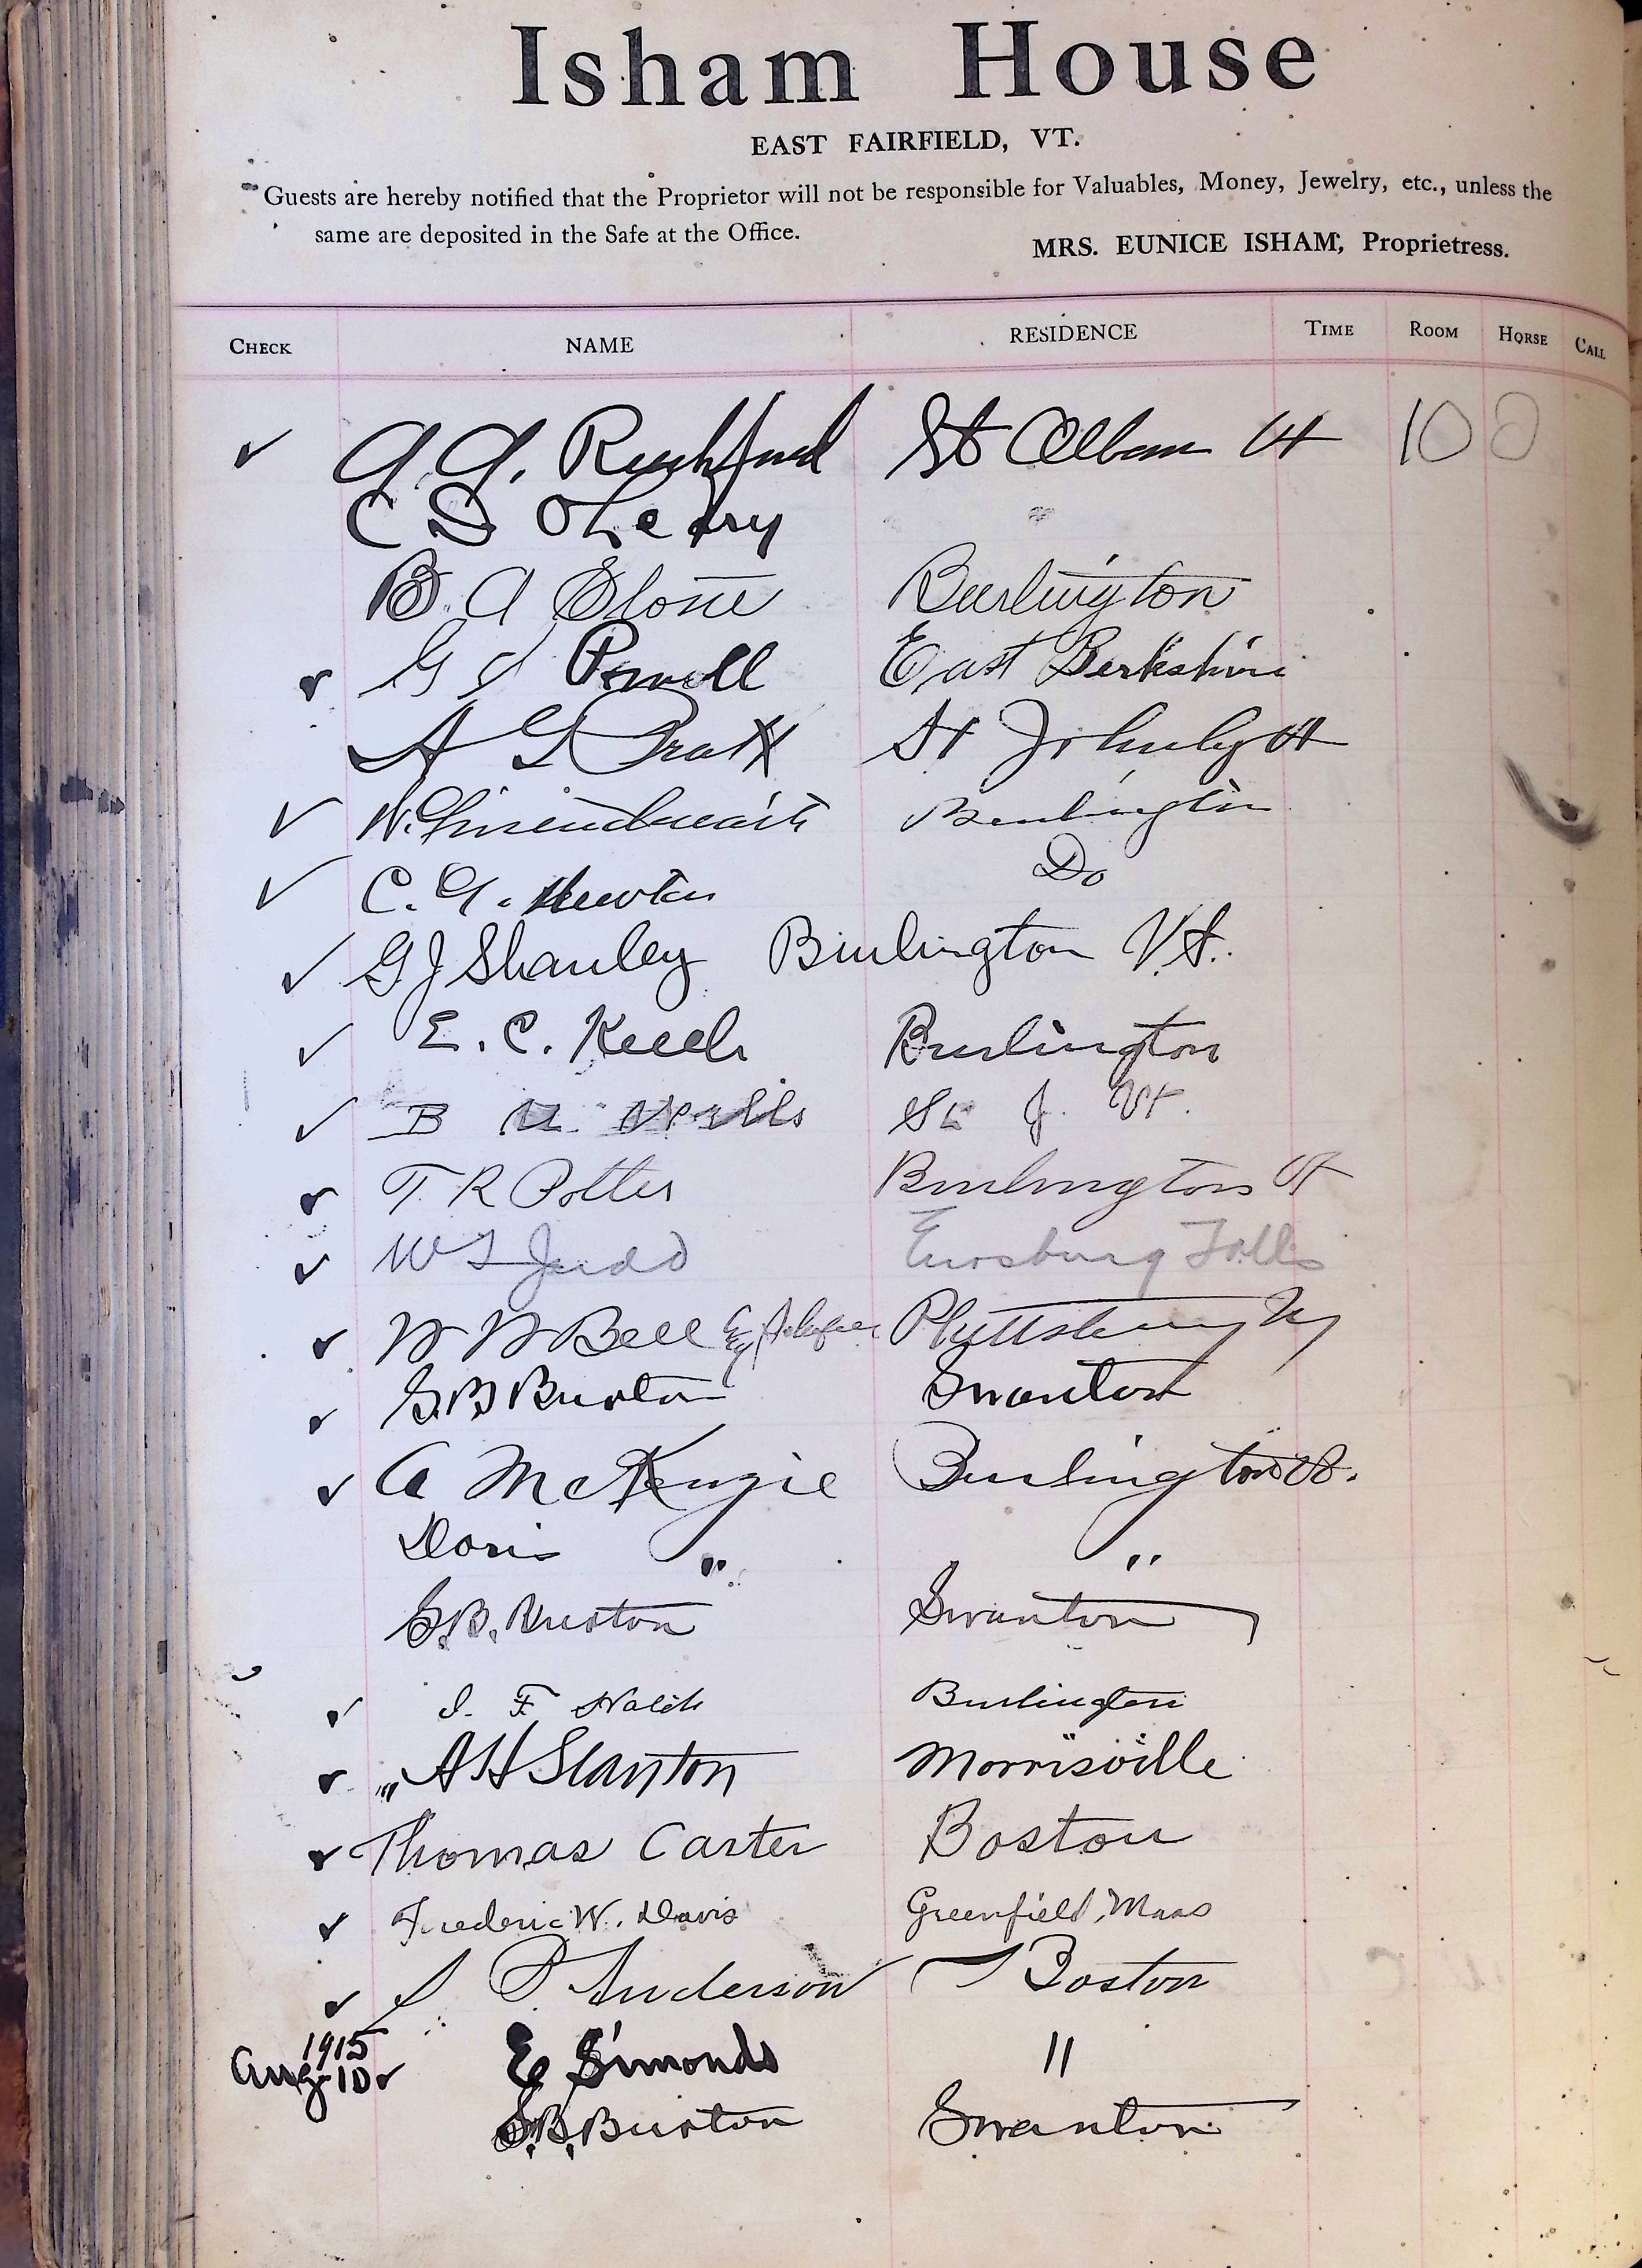 Isham House
EAST FAIRFIELD, VT.
Guests are hereby notified that the Proprietor will not be responsible for Valuables, Money, Jewelry, etc., unless the
same are deposited in the Safe at the Office.
MRS. EUNICE ISHAM, Proprietress.
CHECK NAME RESIDENCE TIME ROOM HORSE CALL
✓ St Albans Vt 10
C D OLeary "
B. A Stone Burlington
✓ G Powell East Berkshire
A G Pratt St Johnsby Vt
✓ Burlington
✓ C. A. Newton Do
✓ G J Shanley Burlington Vt.
✓ E. C. Keech Burlington
✓ B St J. Vt.
✓ T. R Potter Burlington Vt
✓ W Judd Enosburg Falls
✓ W W Bell Plattsburg Ny
✓ S.B Burton Swanton
✓ A McKenzie Burlington Vt.
Doris " "
S.B. Burton Swanton
✓ F Burlington
✓ A H Stanton Morrisville
✓ Thomas Carter Boston
✓ Frederic W. Davis Greenfield, Mass
✓ P. Anderson Boston
1915
Aug-10 ✓ E Simonds "
S.B. Burton Swanton